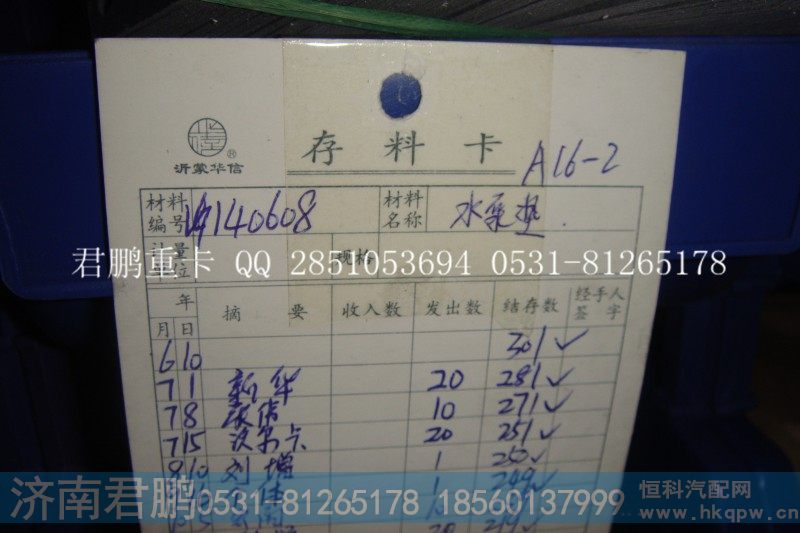 存料卡
A16-2
沂蒙华信
材料编号 140608 材料名称 水泵垫
计量单位 规格
君鹏重卡 QQ 2851053694 0531-81265178
年 月 日 摘要 收入数 发出数 结存数 经手人签字
6 10 301 ✓
7 1 新华 20 281 ✓
7 8 10 271 ✓
7 15 沃尔卡 20 251 ✓
10 刘增 1 250 ✓
249 ✓
济南君鹏 0531-81265178 18560137999 恒科汽配网
www.hkqpw.cn